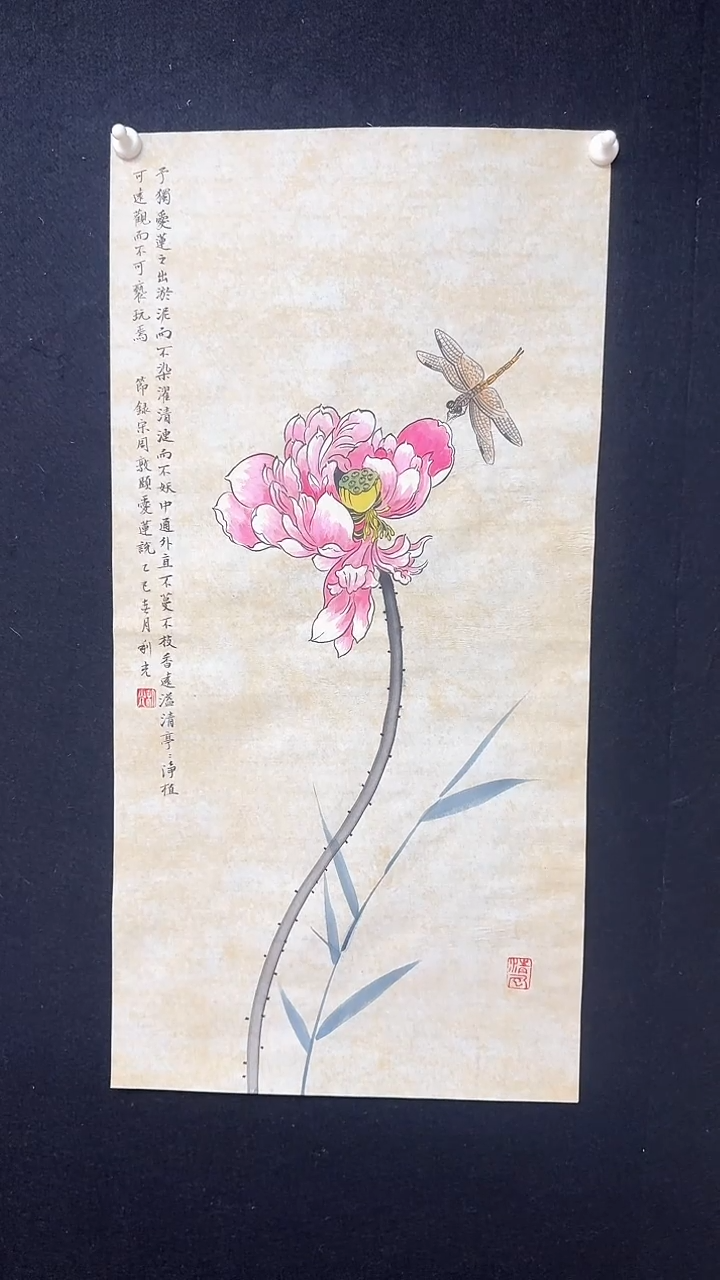 予獨愛蓮之出淤泥而不染濯清漣而不妖中通外直不蔓不枝香遠溢清亭〻淨植
可遠觀而不可褻玩焉 節錄宋周敦頤愛蓮說乙巳春月利光